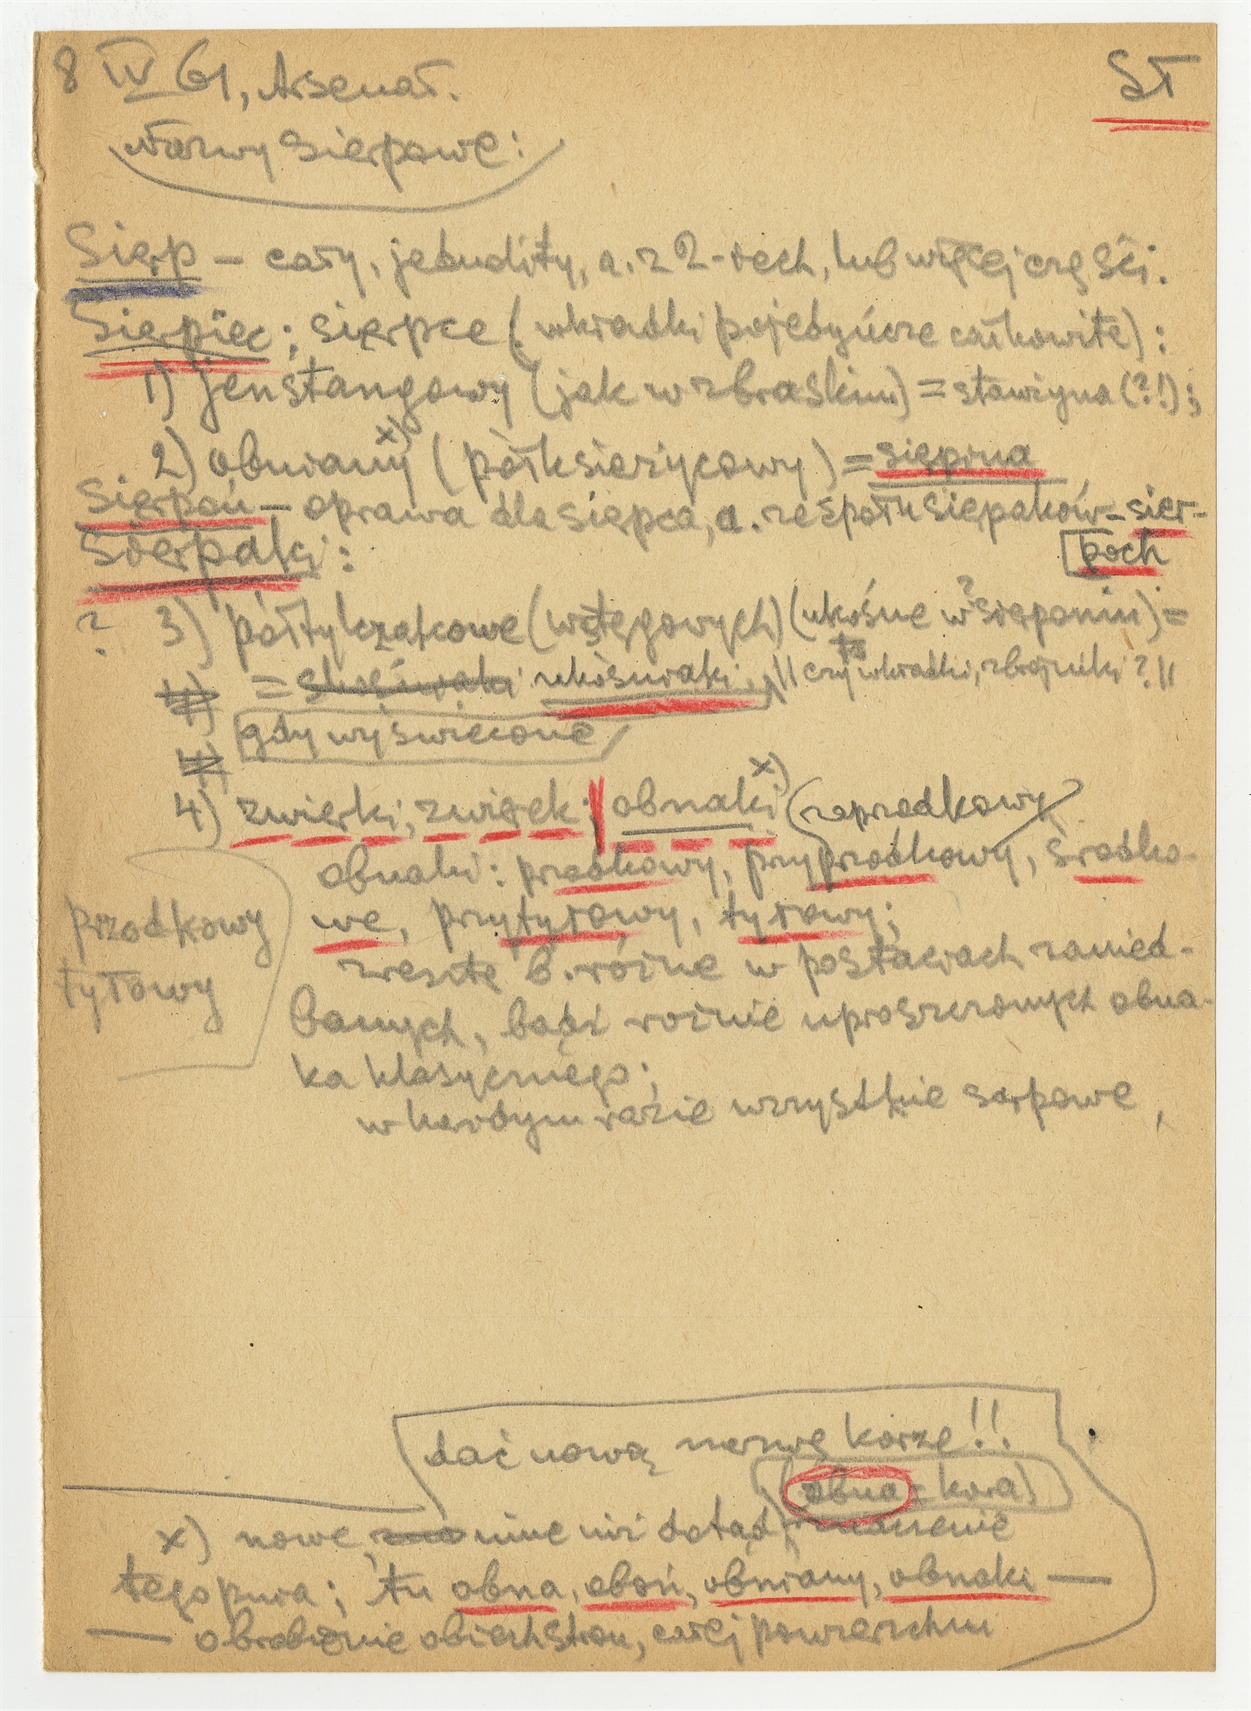 8 IV 61, Arsenał.
SŁ
Nazwy sierpowe:
Sierp – cały, jednolity, a. z 2-wch, lub więcej części.
Sierpiec; sierpce (wkładki pojedyńcze całkowite):
1) jenstangowy (jak w zbraskim) = stawizna (?!);
2) obniany x) (półksiężycowy) = sierpina
Sierpoń – oprawa dla sierpca, a. zespołu sierpaków = sier-
poch
Sierpaki:
? 3) półtylczakowe (wstęgowych) (ukośne w sierponiu) = ?
= ukośniaki, || czy to wkładki, zbrojniki? ||
gdy wyświecone
4) zwierki, zwierek; obnaki x) (zaprzodkowy
obnaki: przodkowy, przyprzodkowy, środko-
we, przytyłowy, tyłowy;
przodkowy
tyłowy
zresztą b. różne w postaciach zanied-
banych, bądź różnie uproszczonych obna-
ka klasycznego;
w każdym razie wszystkie sierpowe,
dać nową nazwę korze!!
(obna = kora)
x) nowe, inne niż dotąd, znaczenie
tego pnia; tu obna, oboń, obniany, obnaki —
— obrobienie obich stron, całej powierzchni